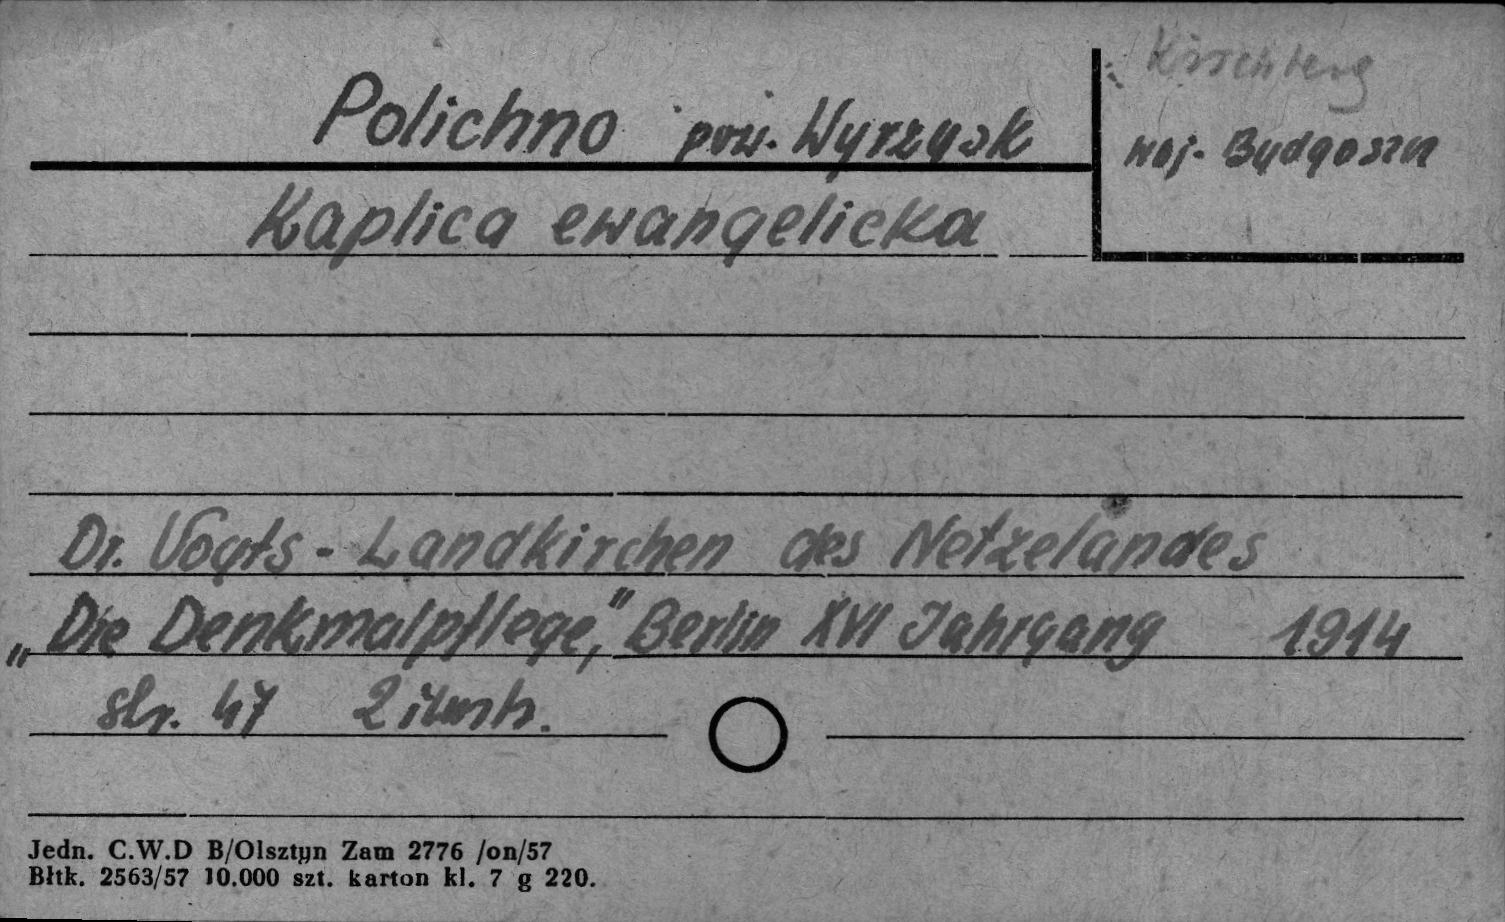 Kirschberg
Polichno pow. Wyrzysk
woj. Bydgoszcz
Kaplica ewangelicka
Dr. Vogts - Landkirchen des Netzelandes
„Die Denkmalpflege," Berlin XVI Jahrgang 1914
str. 47 2 ilustr.
Jedn. C.W.D B/Olsztyn Zam 2776 /on/57
Błtk. 2563/57 10.000 szt. karton kl. 7 g 220.